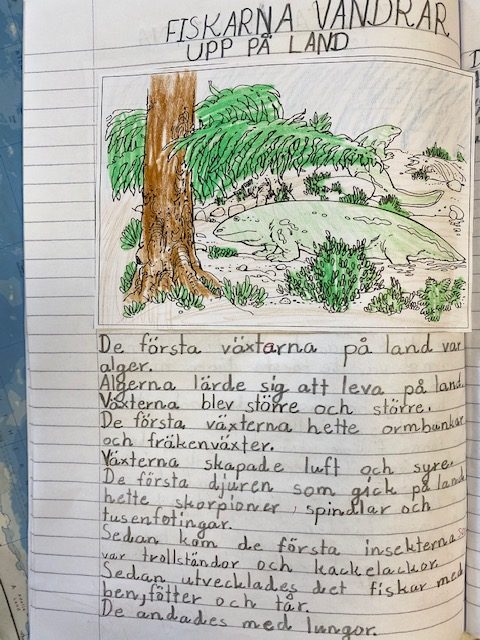 FISKARNA VANDRAR
UPP PÅ LAND
De första växtarna på land var
alger.
Algerna lärde sig att leva på land.
Växterna blev större och större.
De första växterna hette ormbunkar
och fräkenväxter.
Växterna skapade luft och syre.
De första djuren som gick på land
hette skorpioner, spindlar och
tusenfotingar.
Sedan kom de första insekterna som
var trollständor och kackelackor.
Sedan utvecklades det fiskar med
ben, fötter och tår.
De andades med lungor.